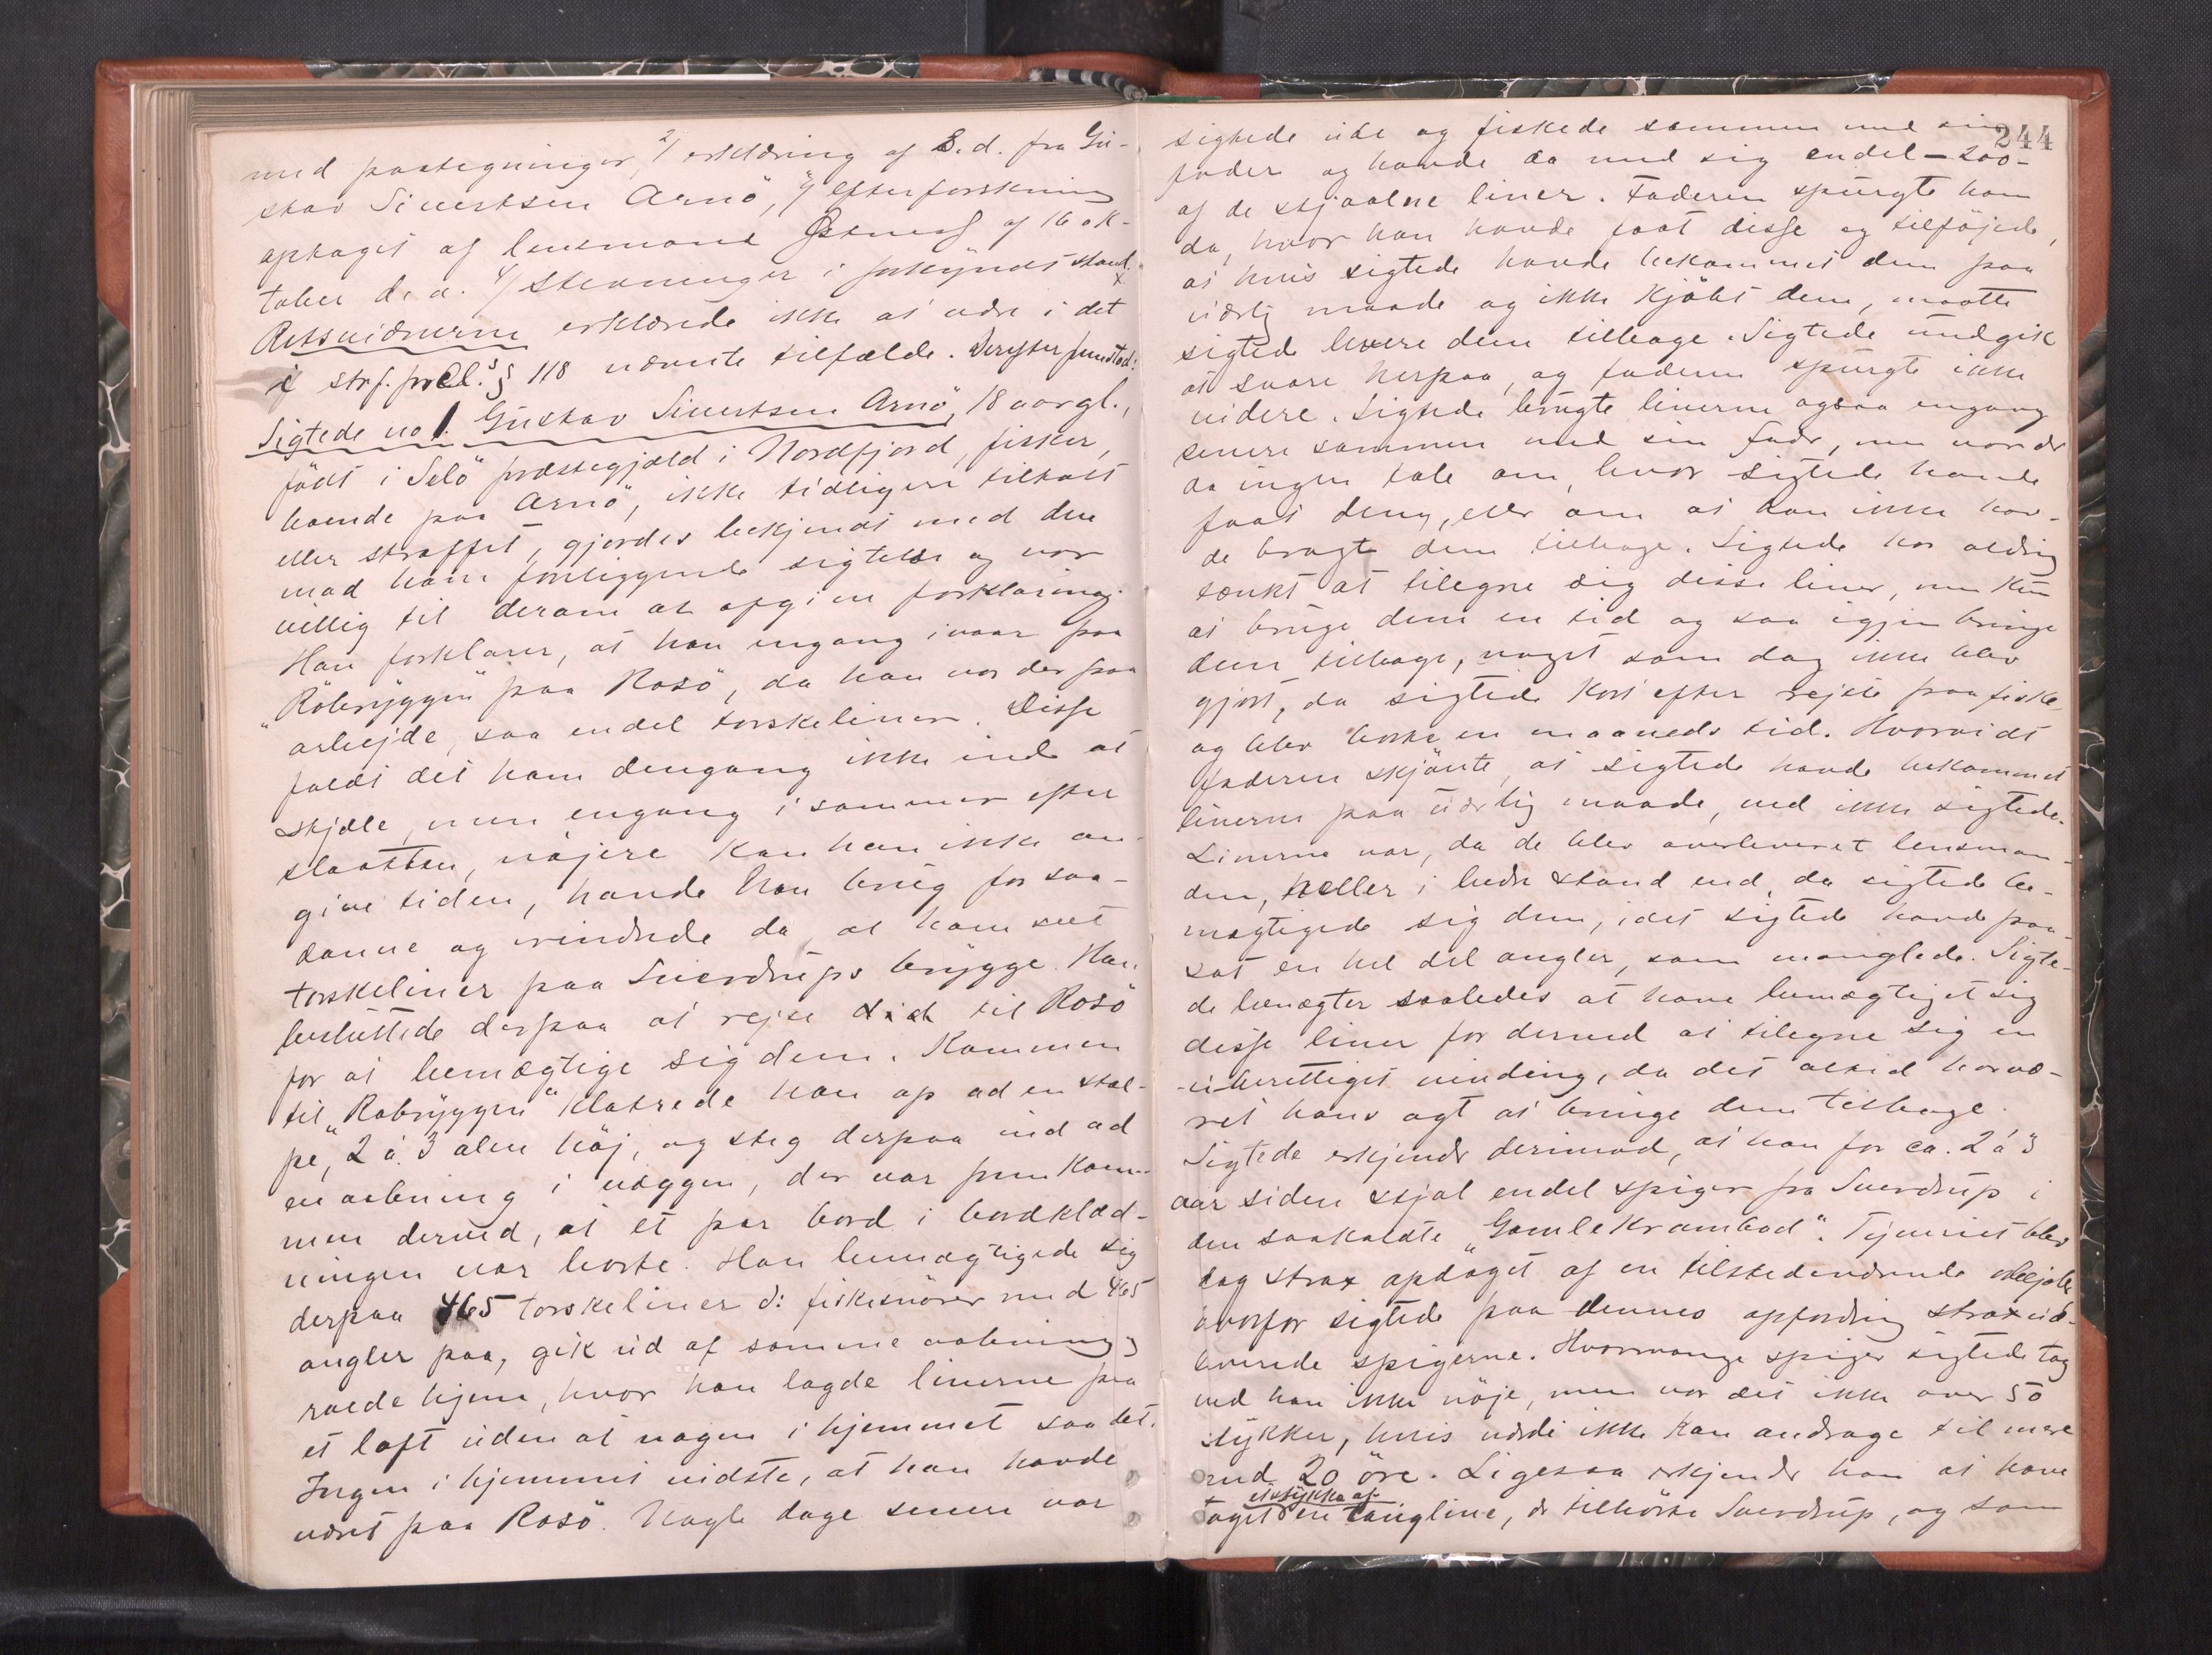 med paategninger, 2/ erklæring af S. d. fra Gu-
stav Sivertsen Arnö, 3/ Efterforskning
optaget af lensmand Östness af 16 ok-
tober d. a. 4/ Stevninger i forkyndt stand.
Retsvidnerne erklærede ikke at være i det
i strf. prcl.s § 118 nævnte tilfælde. Derefter fremstod:
Sigtede no 1. Gustav Sivertsen Arnö, 18 aar gl.,
födt i Selö præstegjæld i Nordfjord, fisker,
boende paa Arnö, ikke tidligere tiltalt
eller straffet, gjordes bekjendt med den
mod ham foreliggende sigtelse og var
villig til derom at afgive forklaring.
Han forklarer, at han engang ivaar paa
"Röbryggen" paa Rosö, da han var der paa
arbejde, saa endel torskeliner. Disse
faldt det ham dengang ikke ind at
stjæle, men engang i sommer efter
slaatten, nöjere kan han ikke an-
give tiden, havde han brug for saa-
danne og erindrede da at have seet
torskeliner paa Sverdrups brygge. Han
besluttede derpaa at rejse did til Rosö
for at bemægtige sig dem. Kommen
til "Röbryggen" klatrede han op ad en stol-
pe, 2 à 3 alen höj, og steg derpaa ind ad
en aabning i væggen, der var frem kom-
men derved, at et par bord i bordklæd-
ningen var borte. Han bemægtigede sig
derpaa 465 torskeliner ɔ: fiskesnörer med 465
angler paa, gik ud af samme aabning og
roede hjem, hvor han lagde linerne paa
et loft uden at nogen i hjemmet saa det.
Ingen i hjemmet vidste, at han havde
været paa Rosö. Nogle dage senere var
244
sigtede ude og fiskede sammen med sin
fader og havde da med sig endel – 200 –
af de stjaalne liner. Faderen spurgte ham
da, hvor han havde faat disse og tilföjede,
at hvis sigtede havde bekommet dem paa
uærlig maade og ikke kjöbt dem, maatte
sigtede levere dem tilbage. Sigtede undgik
at svare herpaa, og faderen spurgte ikke
videre. Sigtede brugte linerne ogsaa engang
senere sammen med sin fader, men var der
da ingen tale om, hvor sigtede havde
faat dem, eller om at han ikke hav-
de bragt dem tilbage. Sigtede har aldrig
tænkt at tilegne sig disse liner, men kun
at bruge dem en tid og saa igjen bringe
dem tilbage, noget som dog ikke blev
gjort, da sigtede kort efter rejste paa fiske
og blev borte en maaneds tid. Hvorvidt
faderen skjönte, at sigtede havde bekommet
linerne paa uærlig maade, ved ikke sigtede.
Linerne var, da de blev overleveret lensman-
den, heller i bedre stand end, da sigtede be-
mægtigede sig dem, idet sigtede havde paa-
sat en hel del angler, som manglede. Sigte-
de benægter saaledes at have bemægtiget sig
disse liner for derved at tilegne sig en
uberettiget vinding, da det altid har væ-
ret hans agt at bringe dem tilbage.
Sigtede erkjender derimod, at han for ca. 2 à 3
aar siden stjal endel spiger fra Sverdrup i
den saakaldte "Gamle Krambod". Tyveriet blev
dog strax opdaget af en tilstedeværende
hvorfor sigtede paa dennes opfordring strax ud-
leverede spigerne. Hvormange spiger sigtede tog
ved han ikke nöje, men var det ikke over 50
stykker, hvis værdi ikke kan andrage til mere
end 20 öre. Ligesaa erkjender han at have
et stykke af
taget en langline, der tilhörte Sverdrup, og som